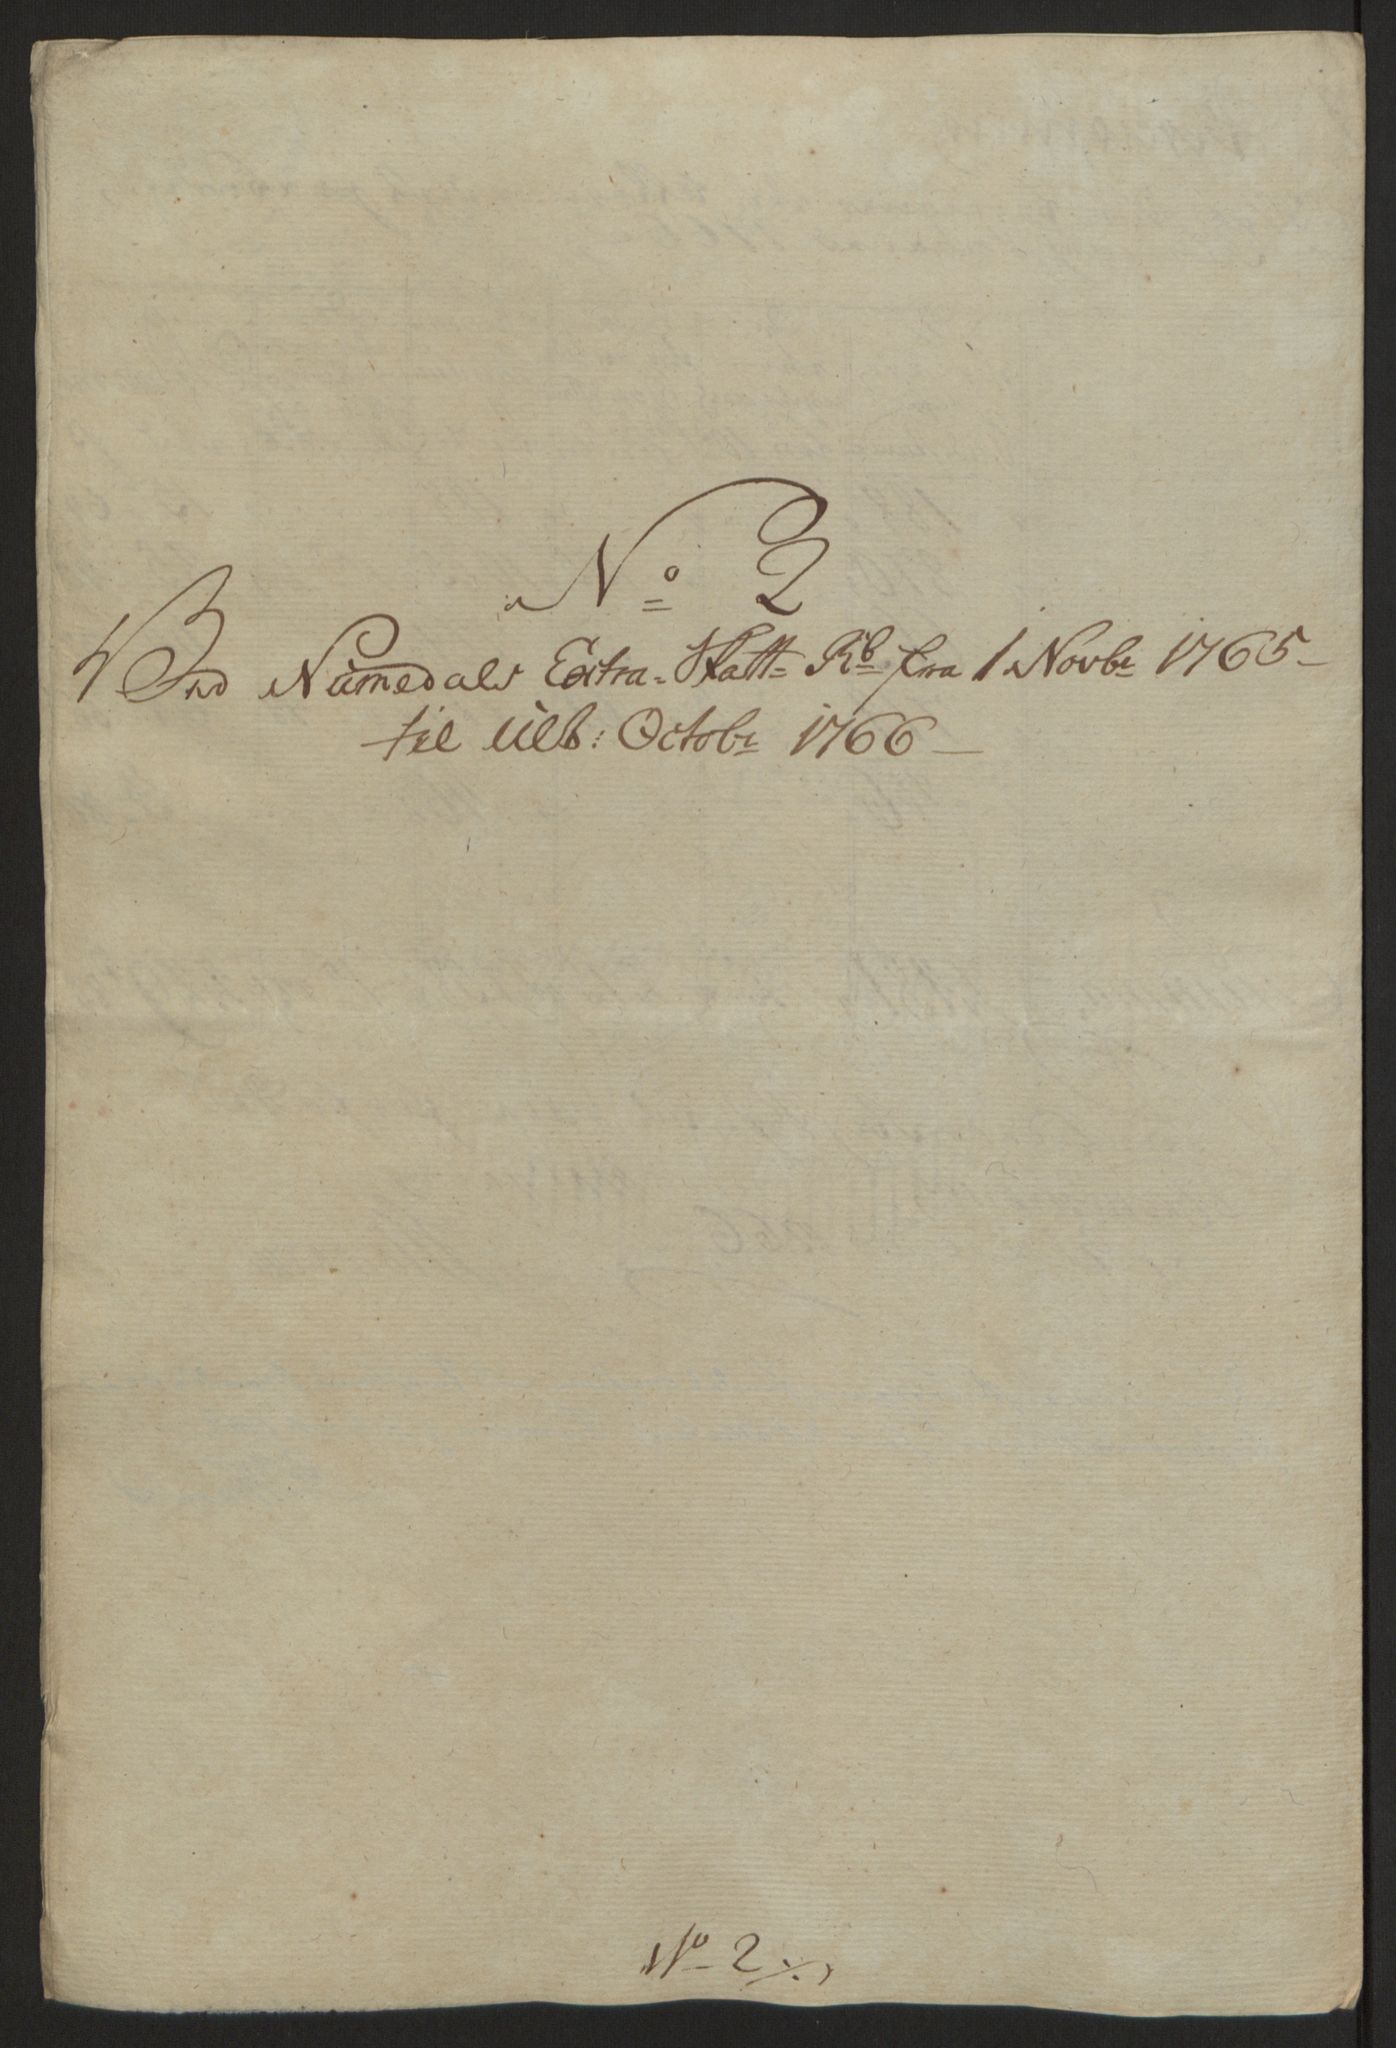 No 2
Ved Numedals Extra-Skatt- Rb fra 1 Novbr 1765
til Ult: Octobr 1766
No 2